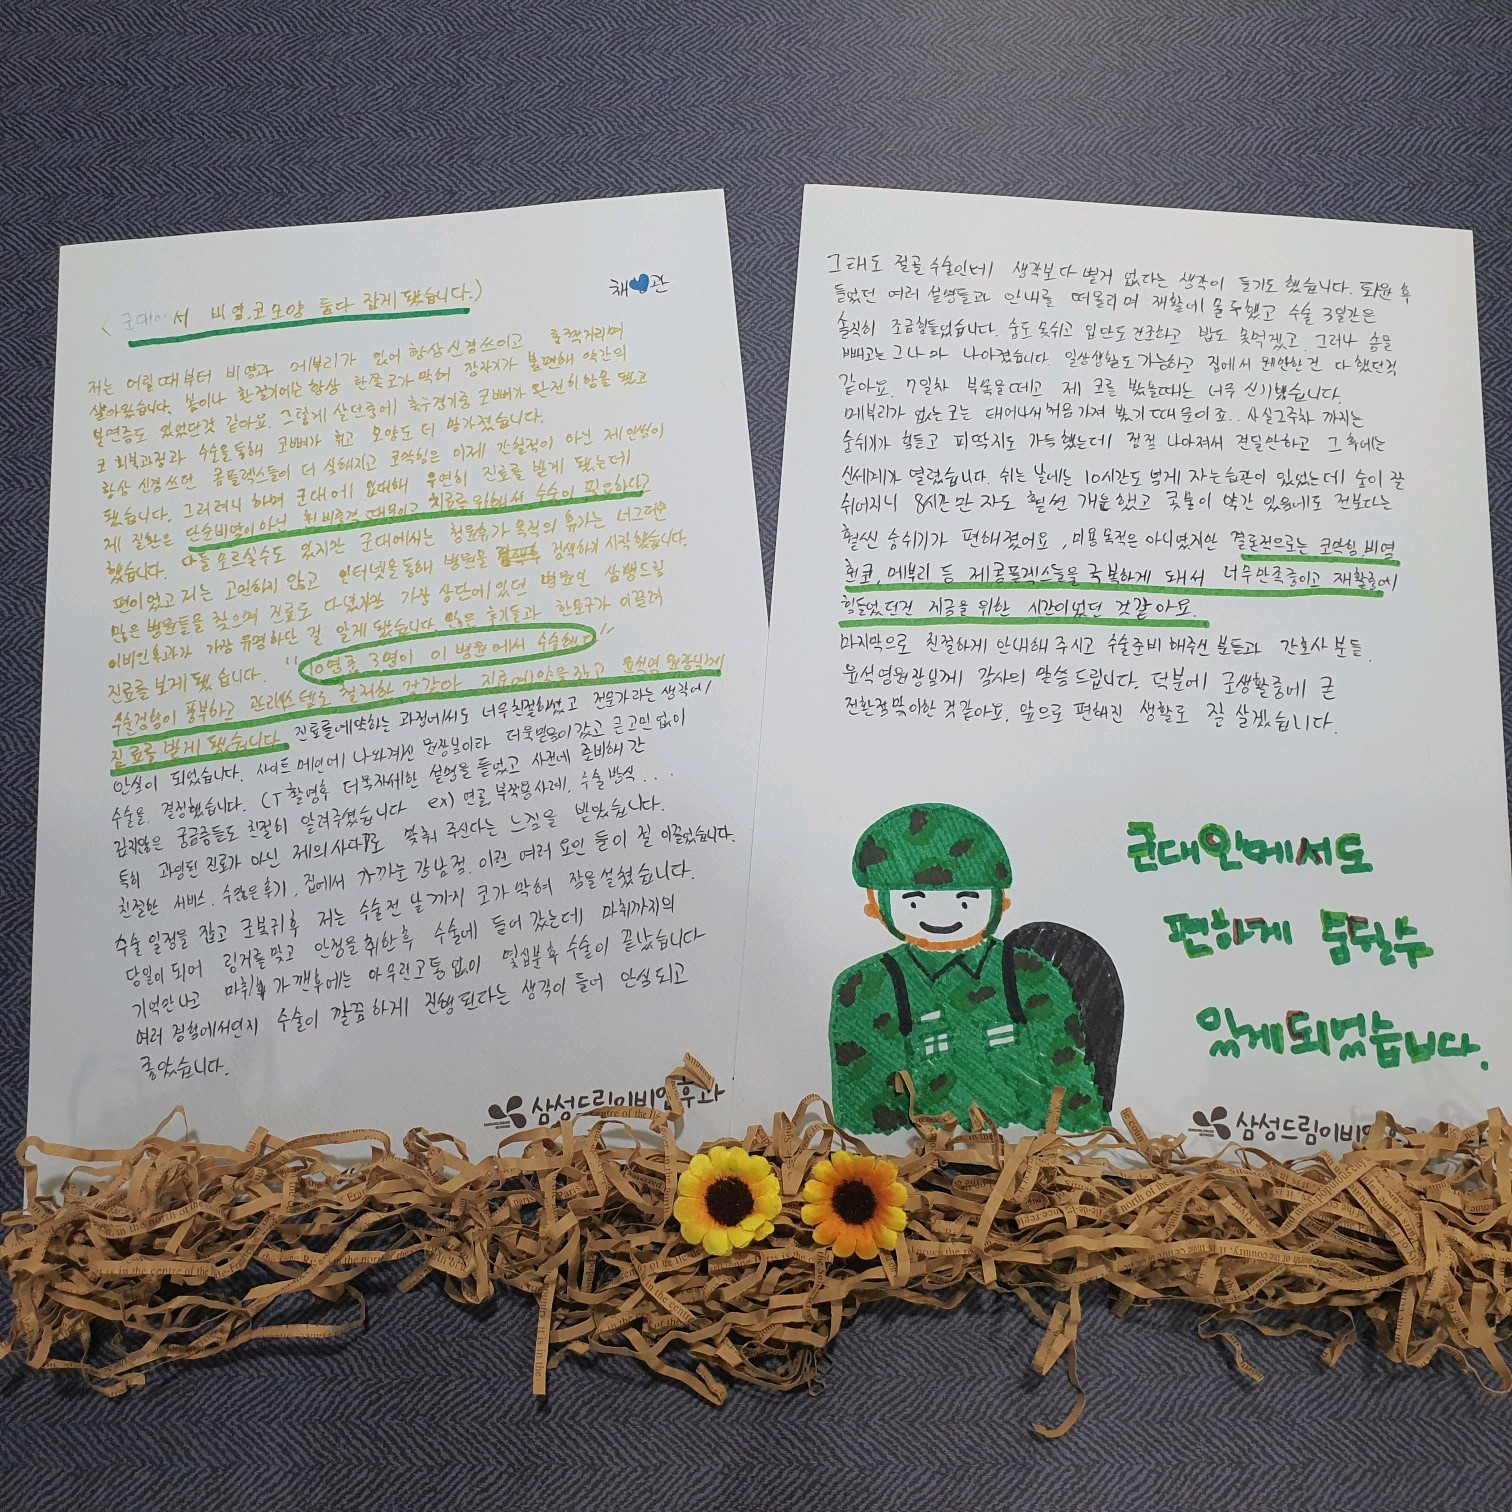 채 관
<군대에서 비염,코모양 둘다 잡게 됐습니다.>
저는 어릴때부터 비염과 메부리가 있어 항상 신경쓰이고 훌쩍거리며
살아왔습니다. 봄이나 환절기에는 항상 한쪽코가 막혀 잠자기가 불편해 약간의
불면증도 있었던것 같아요. 그렇게 살던중에 축구경기중 코뼈가 완전히 함몰 됐고
코 회복과정과 수술을 통해 코뼈가 휘고 모양도 더 망가졌습니다.
항상 신경 쓰던 콤플렉스들이 더 심해지고 코막힘은 이제 간헐적이 아닌 제 일상이
됐습니다. 그러러니 하며 군대에 입대해 우연히 진료를 받게 됐는데
제 질환은 단순비염이 아닌 휜 비중격 때문이고 치료를 위해서 수술이 필요하다고
했습니다. 다들 모르실수도 있지만 군대에서는 청원휴가 목적의 휴가는 너그러운
편이었고 저는 고민하지 않고 인터넷을 통해 병원을 검색하기 시작했습니다.
많은 병원들을 찾으며 진료도 다녔지만 가장 상단에 있던 병원인 삼성드림
이비인후과가 가장 유명하단 걸 알게 됐습니다. 많은 후기들과 한문구가 이끌려
진료를 보게 됐습니다. "10명중 3명이 이 병원에서 수술해요"
수술경험이 풍부하고 관리시스템도 철저한 것같아 진료예약을 잡고 윤석영 원장님께
진료를 받게 됐습니다. 진료를 예약하는 과정에서도 너무 친절하셨고 전문가라는 생각에
안심이 되었습니다. 사이트 메인에 나와계신 원장님이라 더욱 믿음이 갔고 큰 고민 없이
수술을 결정했습니다. CT 촬영후 더욱 자세한 설명을 들었고 사전에 준비해 간
갑작않은 궁금증들도 친절히 알려주셨습니다 ex) 연골, 부작용사례, 수술 방식...
특히 과잉된 진료가 아닌 제의사대로 맞춰 주신다는 느낌을 받았습니다.
친절한 서비스, 수많은 후기, 집에서 가까운 강남점. 이런 여러 요인 들이 절 이끌었습니다.
수술 일정을 잡고 군복귀후 저는 수술전 날까지 코가 막혀 잠을 설쳤습니다.
당일이 되어 링거를 맞고 안정을 취한후 수술에 들어 갔는데 마취까지의
기억만나고 마취가 깬후에는 아무런고통 없이 몇십분후 수술이 끝났습니다
여러 경험에서인지 수술이 깔끔하게 진행된다는 생각이 들어 안심되고
좋았습니다.
삼성드림이비인후과
그래도 절골 수술인데 생각보다 별거 없다는 생각이 들기도 했습니다. 퇴원 후
들었던 여러 설명들과 안내를 떠올리며 재활에 몰두했고 수술 3일간은
솔직히 조금힘들었습니다. 숨도 못쉬고 입안도 건조하고 밥도 못먹겠고. 그러나 솜을
빼고는 그나마 나아졌습니다. 일상생활도 가능하고 집에서 웬만한건 다 했던것
같아요. 7일차 부목을떼고 제 코를 봤을때는 너무 신기했습니다.
메부리가 없는코는 태어나서 처음 가져 봤기 때문이죠.. 사실 2주차 까지는
숨쉬기가 힘들고 피딱지도 가득했는데 점점 나아져서 견딜만하고 그 후에는
신세계가 열렸습니다. 쉬는 날에는 10시간도 넘게 자는습관이 있었는데 숨이 잘
쉬어지니 8시간만 자도 훨씬 개운했고 콧물이 약간 있음에도 전보다는
훨씬 숨쉬기가 편해졌어요, 미용목적은 아니였지만 결론적으로는 코막힘,비염
휜코, 메부리 등 제콤플렉스들을 극복하게 돼서 너무만족중이고 재활중에
힘들었던건 지금을 위한 시간이었던 것같아요.
마지막으로 친절하게 안내해 주시고 수술준비 해주신 분들과 간호사 분들,
윤석영원장님께 감사의 말씀 드립니다. 덕분에 군생활중에 큰
전환점맞이한 것같아요. 앞으로 편해진 생활로 잘 살겠습니다.
군대안에서도
편하게 숨쉴수
있게되었습니다.
삼성드림이비인후과